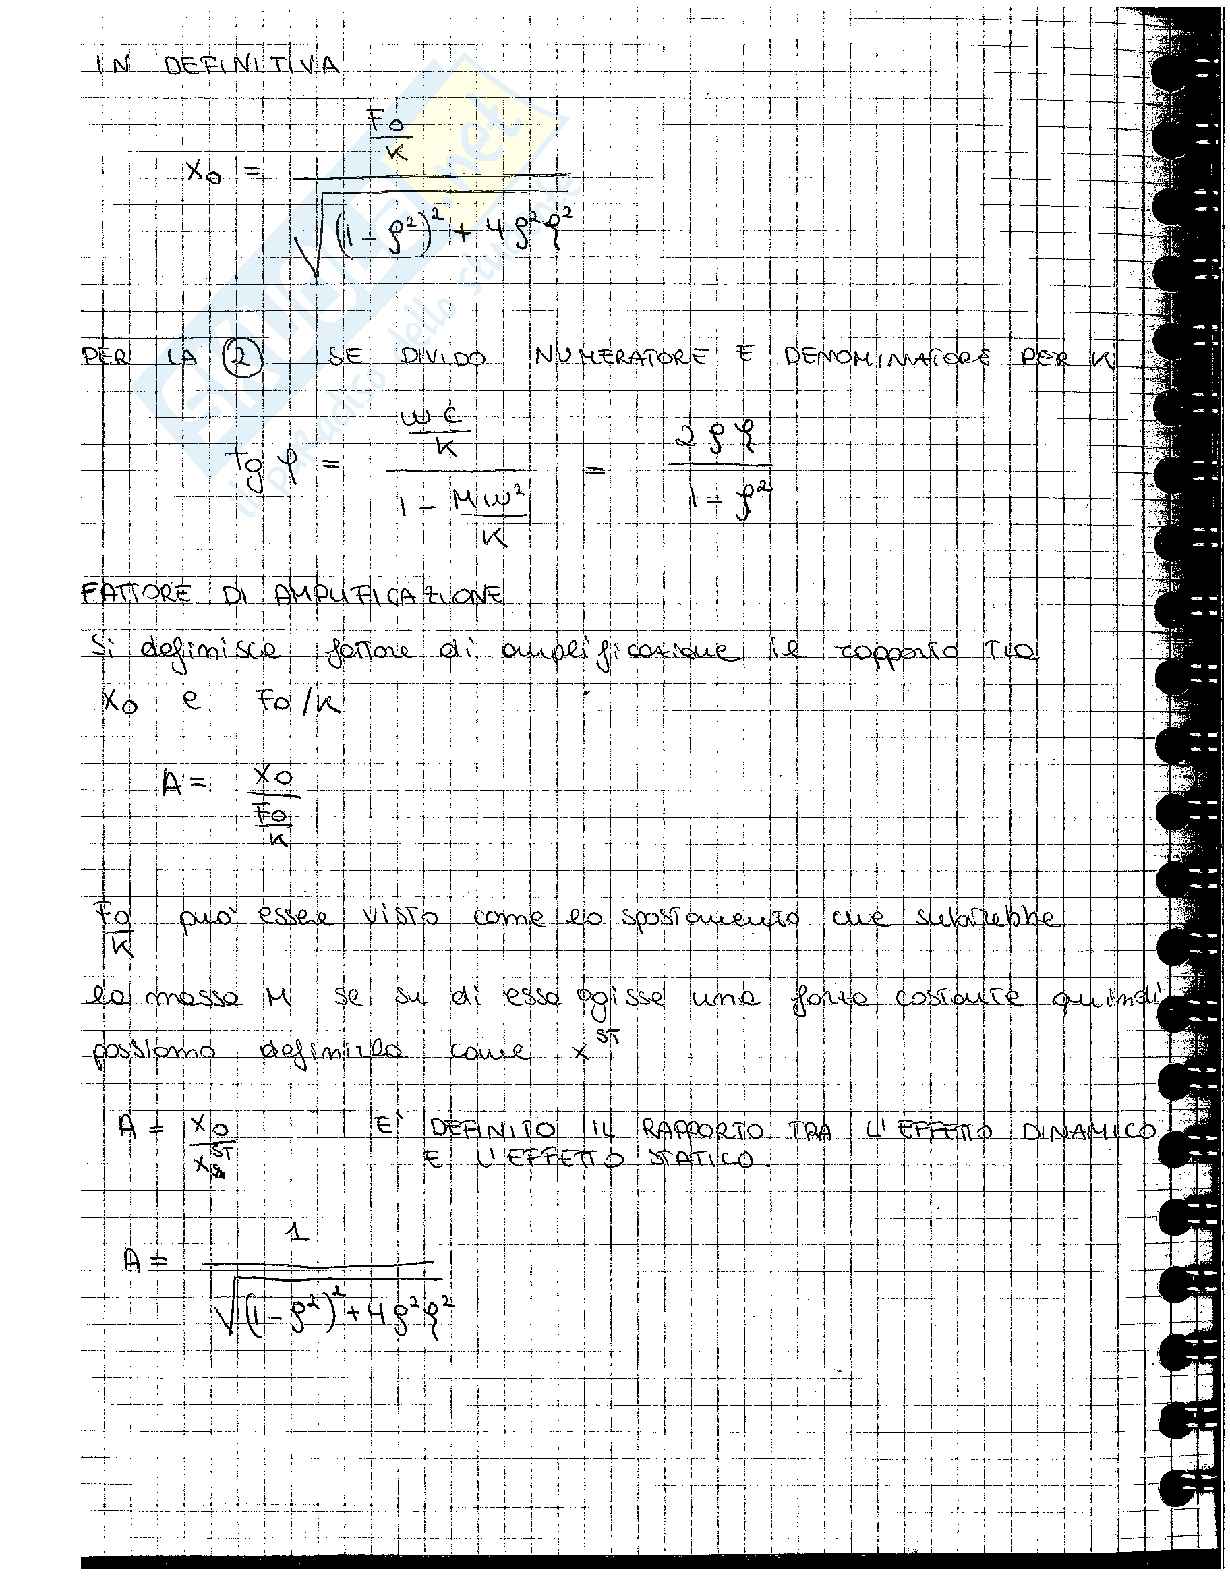 IN DEFINITIVA
x₀ = (F₀/K) / √((1 - ρ²)² + 4ρ²ξ²)
PER LA ② SE DIVIDO NUMERATORE E DENOMINATORE PER K
tg φ = (ωc/K) / (1 - Mω²/K) = 2ρξ / (1 - ρ²)
FATTORE DI AMPLIFICAZIONE
Si definisce fattore di amplificazione il rapporto tra
x₀ e F₀/K
A = x₀ / (F₀/K)
F₀/K può essere visto come lo spostamento che subirebbe
la massa M se su di essa agisse una forza costante quindi
possiamo definirlo come x^ST
A = x₀ / x^ST E' DEFINITO IL RAPPORTO TRA L'EFFETTO DINAMICO
E L'EFFETTO STATICO.
A = 1 / √((1 - ρ²)² + 4ρ²ξ²)